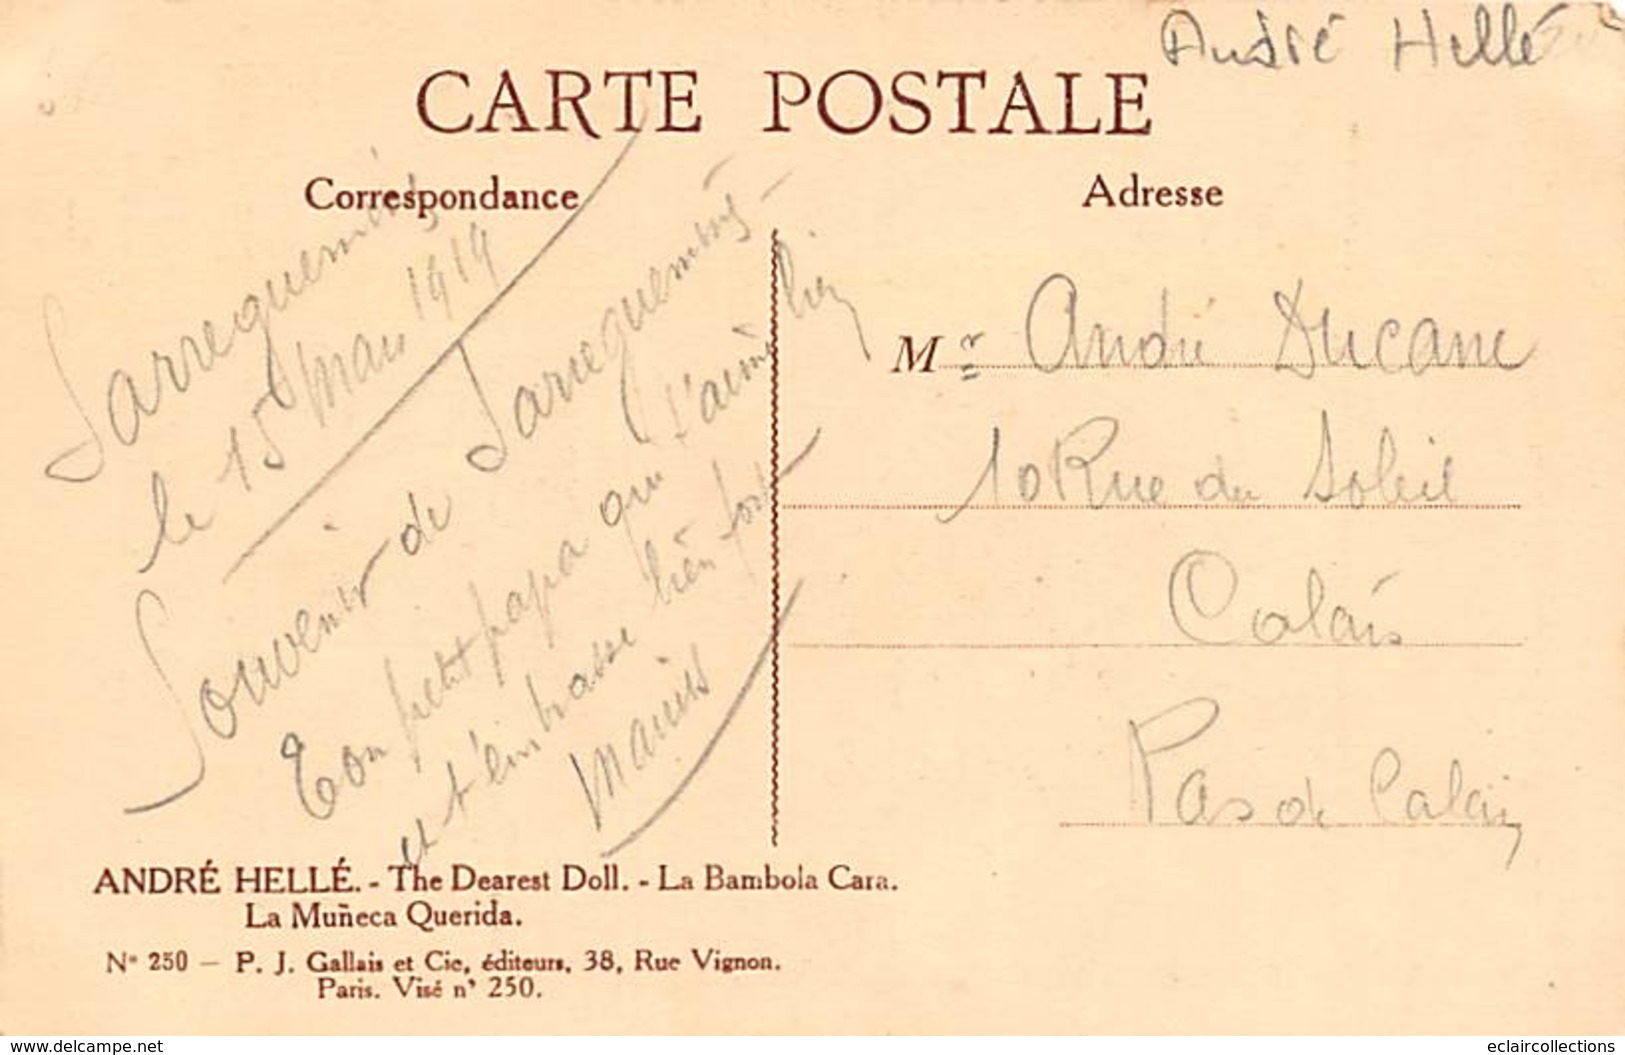 André Hellé
CARTE POSTALE
Correspondance
Adresse
Sarreguemines
le 15 mars 1919
Souvenir de Sarreguemines
Ton petit papa qui t'aime bien
et t'embrasse bien fort
Mr André
10 Rue du Soleil
Calais
Pas de Calais
ANDRÉ HELLÉ. - The Dearest Doll. - La Bambola Cara.
La Muñeca Querida.
N° 250 — P. J. Gallais et Cie, éditeurs, 38, Rue Vignon.
Paris. Visé n° 250.
delcampe.net
eclaircollections